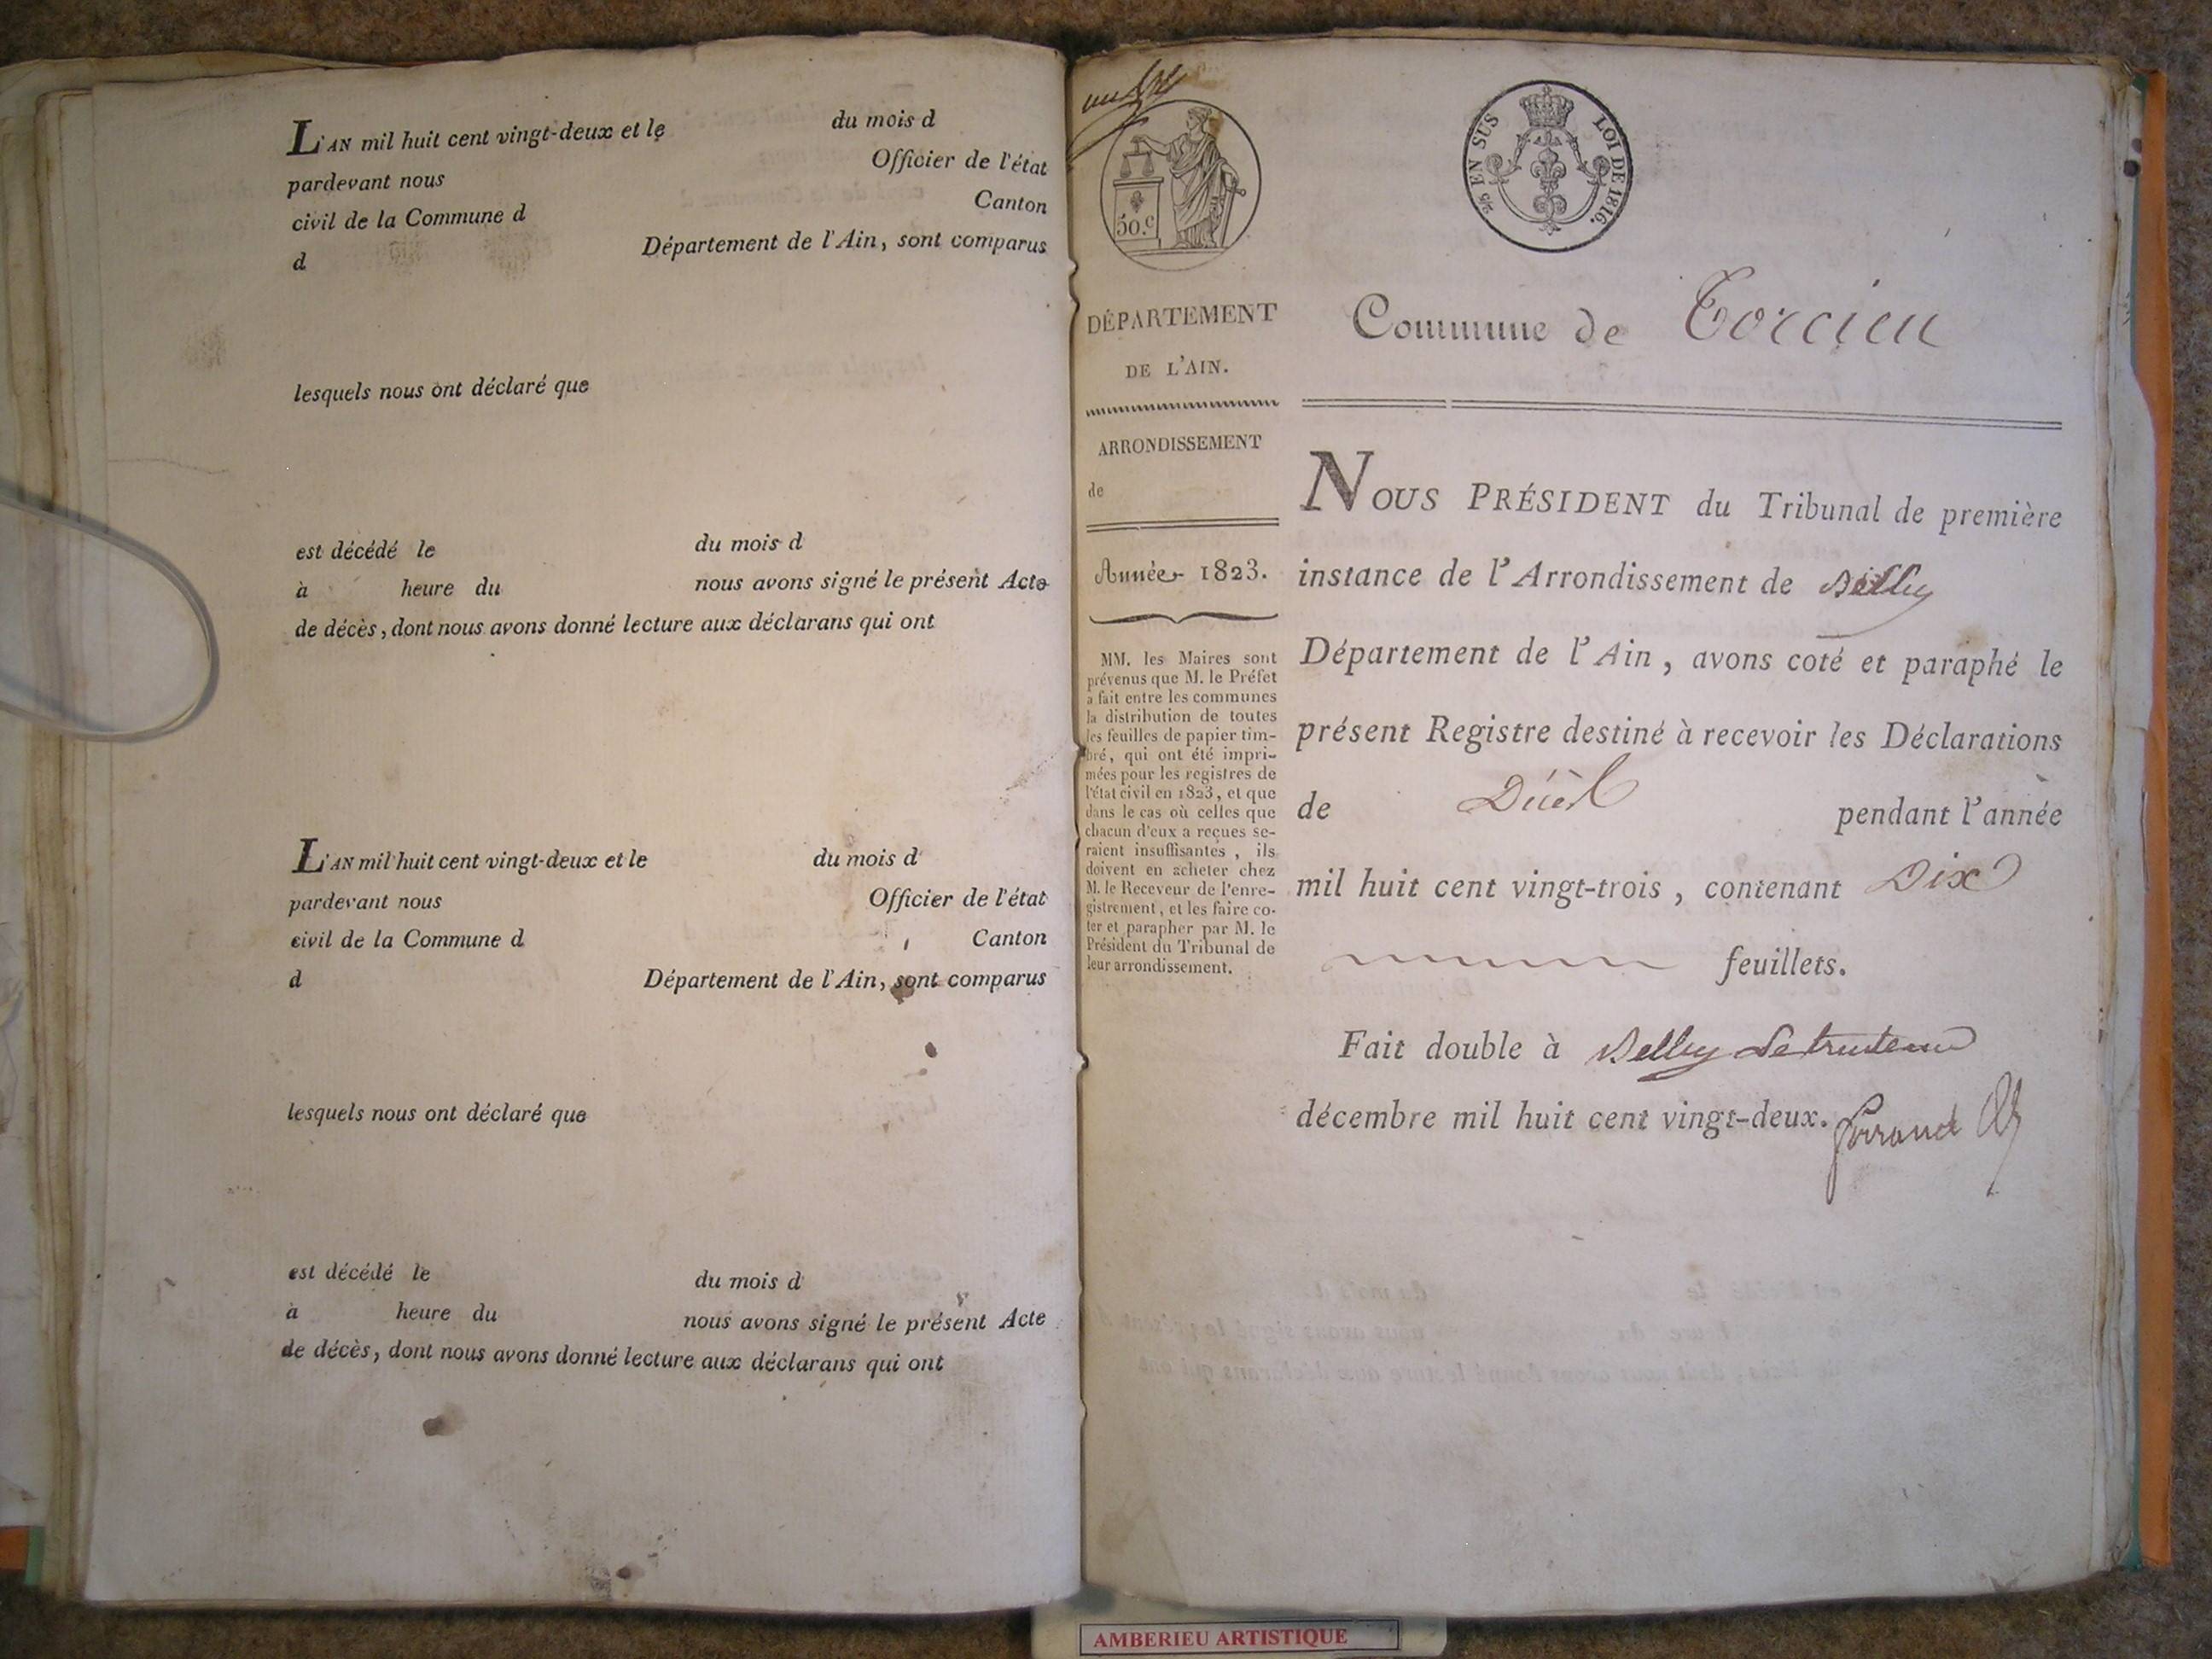 L'AN mil huit cent vingt-deux et le du mois d
pardevant nous Officier de l'état
civil de la Commune d Canton
d Département de l'Ain, sont comparus
lesquels nous ont déclaré que
est décédé le du mois d
à heure du nous avons signé le présent Acte
de décès, dont nous avons donné lecture aux déclarans qui ont
L'AN mil huit cent vingt-deux et le du mois d
pardevant nous Officier de l'état
civil de la Commune d Canton
d Département de l'Ain, sont comparus
lesquels nous ont déclaré que
est décédé le du mois d
à heure du nous avons signé le présent Acte
de décès, dont nous avons donné lecture aux déclarans qui ont
50.c
EN SUS LOI DE 1816.
DÉPARTEMENT
DE L'AIN.
ARRONDISSEMENT
de
Année 1823.
MM. les Maires sont
prévenus que M. le Préfet
a fait entre les communes
la distribution de toutes
les feuilles de papier tim-
bré, qui ont été impri-
mées pour les registres de
l'état civil en 1823, et que
dans le cas où celles que
chacun d'eux a reçues se-
raient insuffisantes, ils
doivent en acheter chez
M. le Receveur de l'enre-
gistrement, et les faire co-
ter et parapher par M. le
Président du Tribunal de
leur arrondissement.
Commune de Torcieu
NOUS PRÉSIDENT du Tribunal de première
instance de l'Arrondissement de Belley
Département de l'Ain, avons coté et paraphé le
présent Registre destiné à recevoir les Déclarations
de Décès pendant l'année
mil huit cent vingt-trois, contenant Dix
feuillets.
Fait double à Belley le trente un
décembre mil huit cent vingt-deux.
AMBERIEU ARTISTIQUE